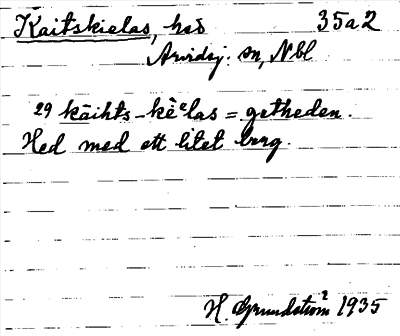 Kaitskielas, hed 35a2
Arvidsj. sn, Nbl
29 kāihts-kēᵉlas = getheden.
Hed med ett litet berg.
H Grundström 1935